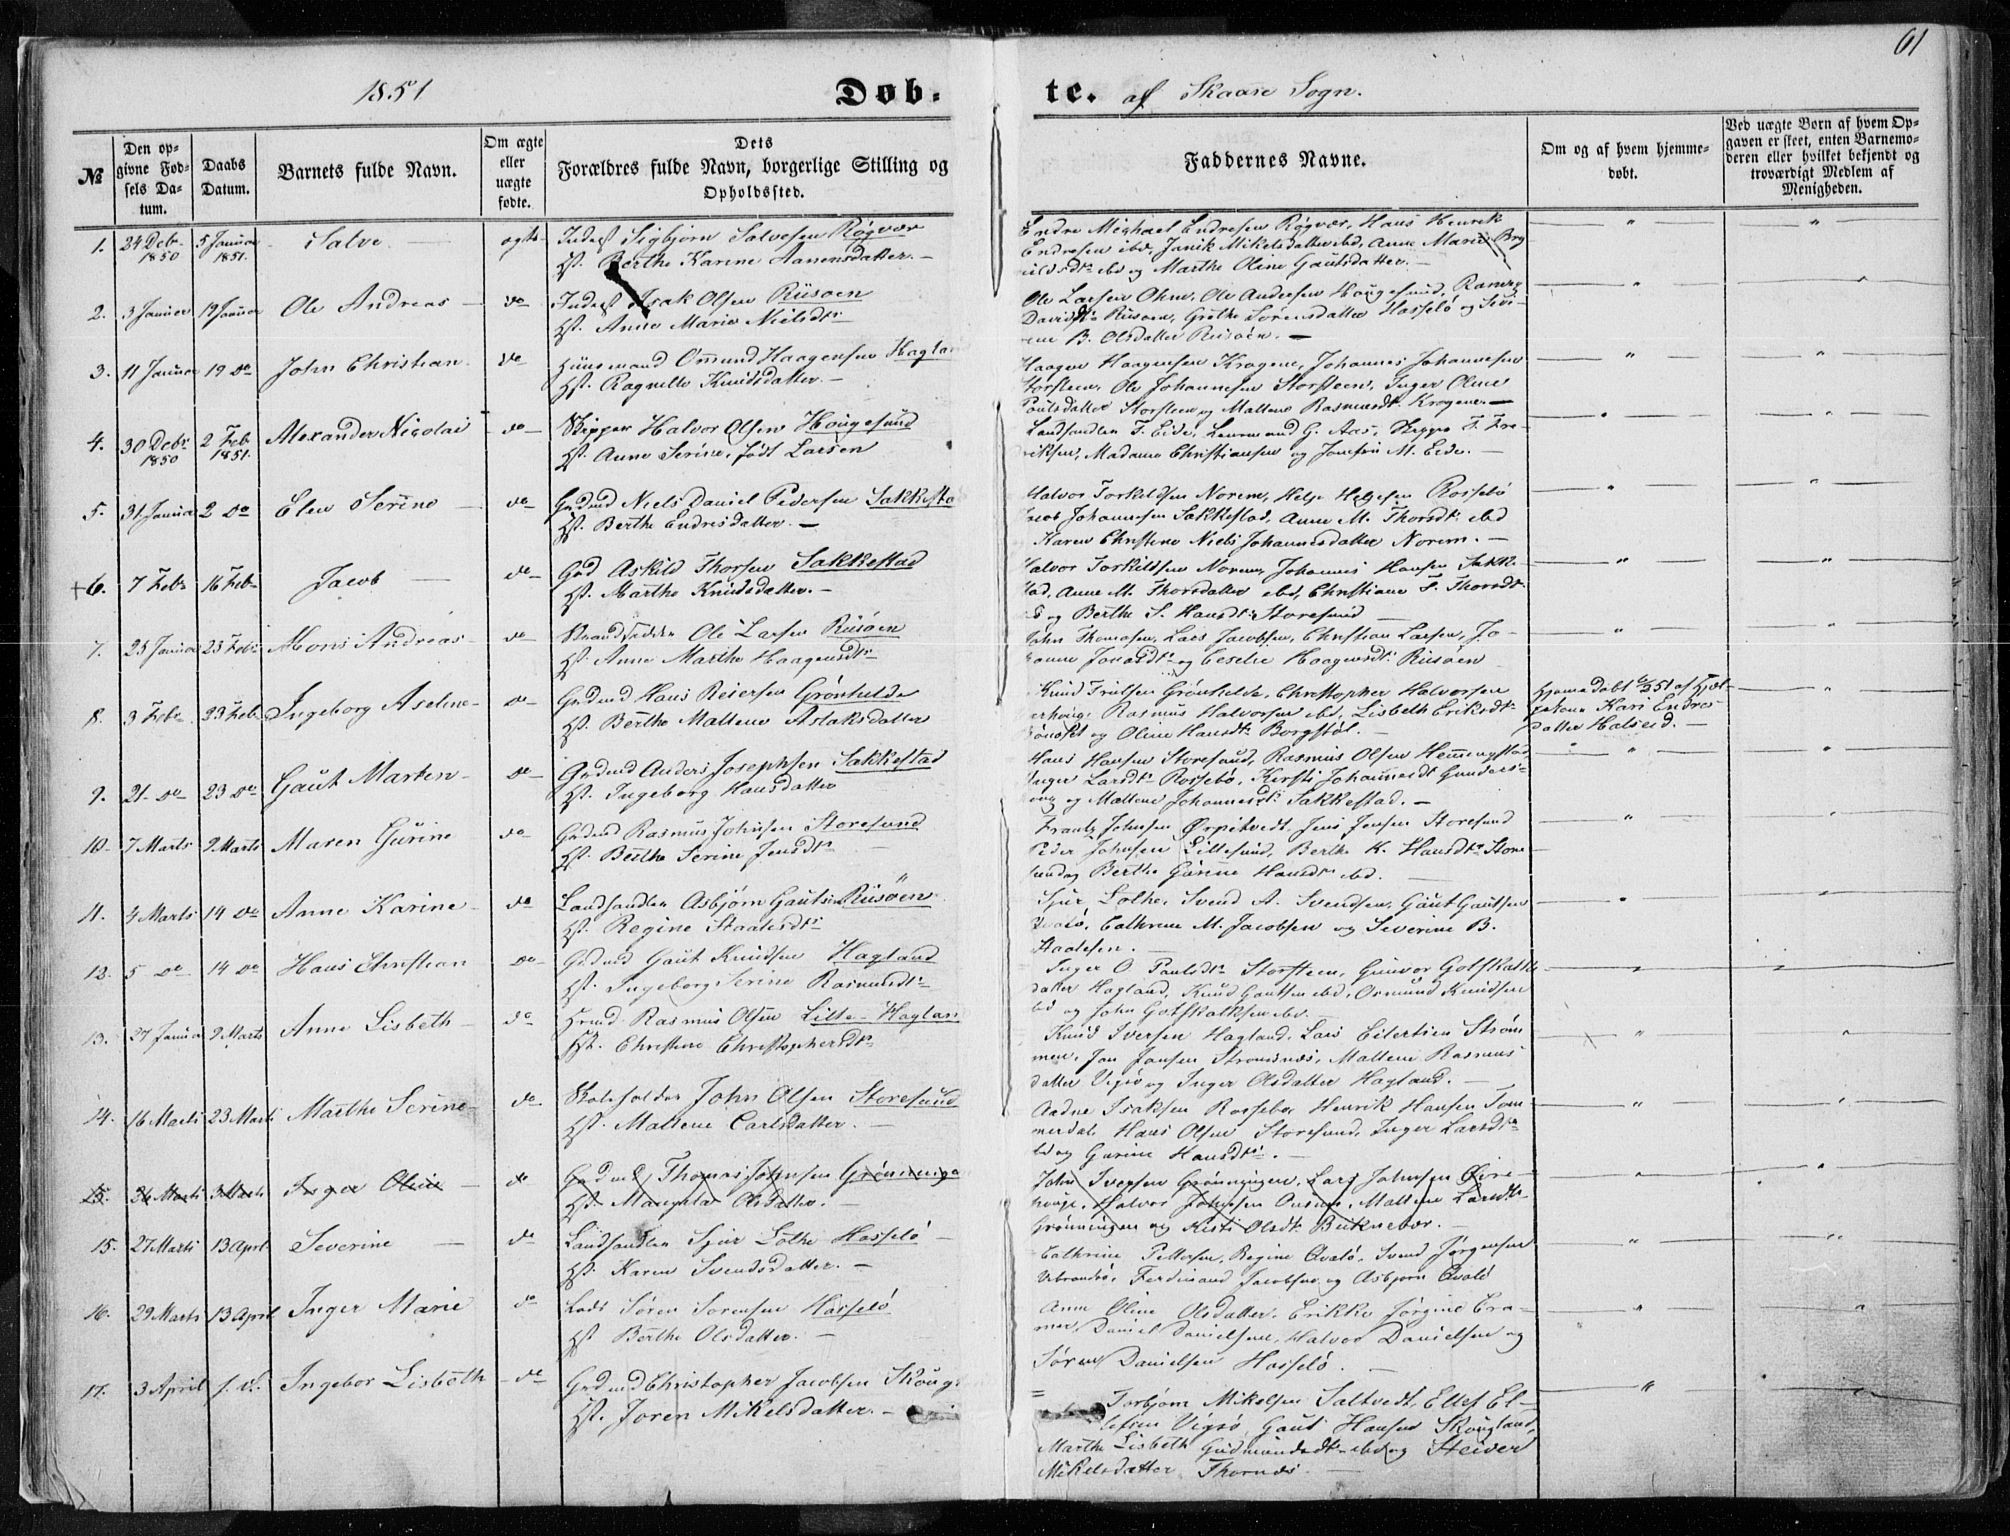 61
1851
Døb-
te. af Skaare Sogn.
№
Den op-
givne Fød-
sels Da-
tum.
Daabs
Datum.
Barnets fulde Navn.
Om ægte
eller
uægte
fødte.
Dets
Forældres fulde Navn, borgerlige Stilling og
Opholdssted.
Faddernes Navne.
Om og af hvem hjemme-
døbt.
Ved uægte Børn af hvem Op-
gaven er skeet, enten Barnemo-
deren eller hvilket bekjendt og
troværdigt Medlem af
Menigheden.
1. 24 Debr 1850 5 Januar 1851. Salve ægte Inderst Sigbjørn Salvesen Røgvær
Hst. Berthe Karine Aanensdatter.
Endre Michael Endresen Røgvær, Hans Henrik
Endresen ibd, Janik Mikelsdatter ibd, Anne Marie
ibd og Marthe Oline Gautsdatter.
2. 3 Januar 19 Januar Ole Andreas do Inderst Isak Olsen Risøen
Hst. Anne Marie Nielsdtr
Ole Larsen Ohm, Ole Andersen Hougesund,
Davidsdtr Risøen, Grethe Sørensdatter Hasselø og
B. Olsdatter Risøen.
3. 11 Januar 19 do John Christian do Huusmand Omund Haagensen
Hst. Ragnilde Knudsdatter.
Haagen Haagensen Kragene, Johannes Johannesen
Storsteen, Ole Johannesen Storsteen, Inger Oline
Poulsdatter Storsteen og Maltene Rasmusdt. Kragene
4. 30 Debr 1850 2 Feb 1851. Alexander Nicolai do Skipper Halvor Olsen Hougesund
Hst. Anne Serine, født Larsen
Landhandler F. Eide, G. Aas, Skipper F. Fre-
riksen, Madame Christiansen og Jomfru M. Eide.
5. 31 Januar 2 do Elen Serine do Grdmd Niels Daniel Pedersen
Hst. Berthe Endresdatter.
Halvor Torkildsen Norem, Helje Helgesen Rossebø
Johannesen Sakkestad, Anne M. Thorsdt. ibd
Karen Christine Niels Johannesdatter Norem.
+6. 7 Febr 16 Febr Jacob do Grd Askild Thorsen Sakkestad
Hst. Marthe Knudsdatter.
Halvor Torkildsen Norem, Johannes Hansen
Anne M. Thorsdatter ibd, Christiane T. Thorsdt.
og Berthe S. Hansdt. Storesund
7. 25 Januar 23 Febr Mons Andreas do Strandsidder Ole Larsen Risøen
Hst. Anne Marthe Haagensdtr
John Thomasen, Lars Jacobsen, Christian Larsen, Jo-
hanne Jonasdtr og Ceselie Haagensdt. Risøen
8. 3 Febr 23 Feb. Ingeborg Aseline do Grdmd Hans Reiersen Grønhelde
Hst. Berthe Maltene Aslaksdatter
Knud Troelsen Grønhelde, Christopher Halvorsen
Rasmus Halvorsen ibd, Lisbeth Eriksdtr
og Oline Hansdt. Borgstøl.
Hjemmedøbt 51 af
Kari Endres-
datter Halseid.
9. 21 do 23 do Gaut Marten do Grdmd Anders Josephsen Sakkestad
Hst. Ingeborg Hansdatter
Hans Hansen Storesund, Rasmus Olsen Hemmingstad
Inger Larsdtr Rossebø, Kirsti Johannesdt
og Maltene Johannesdt. Sakkestad.
10. 7 Marts 9 Marts Maren Gurine do Grdmd Rasmus Johnsen Storesund
Hst. Berthe Serine Jensdtr
Frantz Johnsen Ørpetvedt, Jens Jensen Storesund
Peder Johnsen Lillesund, Berthe K. Hansdtr Store-
sund og Berthe Gurine Hansdtr ibd.
11. 4 Marts 14 do Anne Karine do Landhandler Asbjørn Gautsen Risøen
Hst. Regine Staalesdtr
Sjur Lothe, Svend A. Svendsen, Gaut Gautsen
Cathrine M. Jacobsen og Severine B.
Staalesen.
12. 5 do 14 do Hans Christian do Grdmd Gaut Knudsen Hagland
Hst. Ingeborg Serine Rasmusdtr
Inger O Paulsdtr Storsteen, Gunvor Gotskalks-
datter Hagland, Knud Gautsen ibd, Osmund Knudsen
ibd og John Gotskalksen ibd.
13. 27 Januar 9 Marts Anne Lisbeth do Hrmd Rasmus Olsen Lille-Haglan
Hst. Christine Christophersdtr
Knud Iversen Hagland, Lars Eilertsen Strøm-
men, Jan Jansen Stromsnæs, Maltene Rasmus-
datter Vigsø og Inger Olsdatter Hagland.
14. 16 Marts 23 Marts Marthe Serine do Skoleholder John Olsen Storesund
Hst. Maltene Carlsdatter.
Aadne Isaksen Rossebø, Henrik Hansen Tom-
merdal, Hans Olsen Storesund, Inger Larsdtr
ibd og Gurine Hansdtr.
15. Marts Marts Inger Oline do Grdmd Thomas Johnsen Grønninge
Hst. Olsdatter.
John Iversen Grønningen, Lars Johnsen
Halvor Johnsen Maltene Larsdtr
Grønningen og Kisti Olsdt. Buknebær.
15. 27 Marts 13 Apr. Severine do Landhandler Sjur Lothe Hasselø
Hst. Karen Svendsdatter.
Cathrine Pettersen, Regine Qvalø, Svend Jørgensen
Ferdinand Jacobsen og Asbjørn Qvalø
16. 29 Marts 13 April Inger Marie do Lods Søren Sørensen Hasselø
Hst Berthe Olsdatter.
Anne Oline Olsdatter, Erikke Jørgine Cra-
mer, Daniel Danielsen, Halvor Danielsen og
Søren Danielsen Hasselø.
17. 3 April Ingebor Lisbeth do Grdmd Christopher Jacobsen
Hst. Joren Mikelsdatter.
Torbjørn Mikelsen Saltvedt, Ellef El-
lefsen Vigsø, Gaut Hansen Skougland,
Marthe Lisbeth Gudmundsdtr ibd og
Mikelsdatter Thornæs.